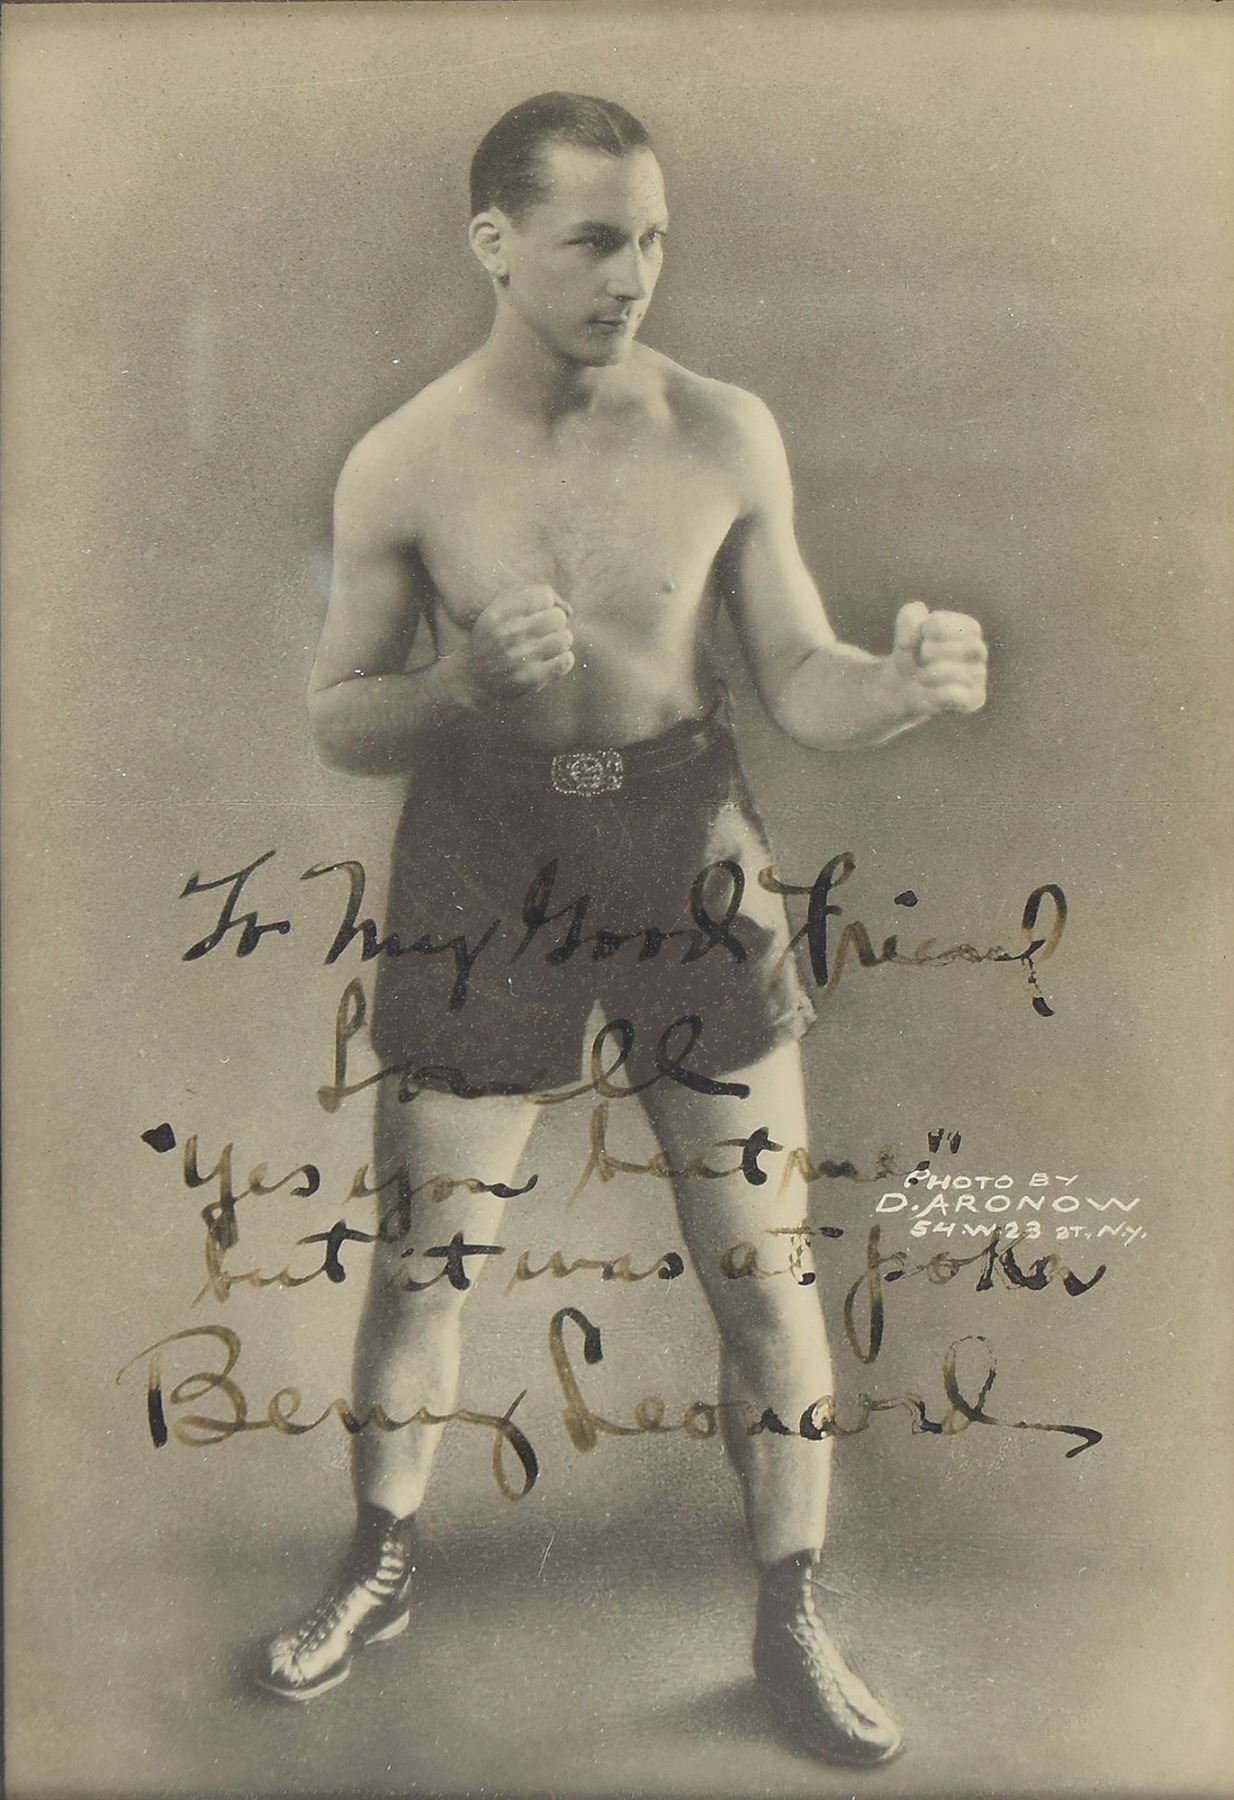 To My Good Friend
Lowell
"Yes you beat me"
but it was at poker
Benny Leonard
PHOTO BY
D. ARONOW
54 W. 23 ST. N.Y.